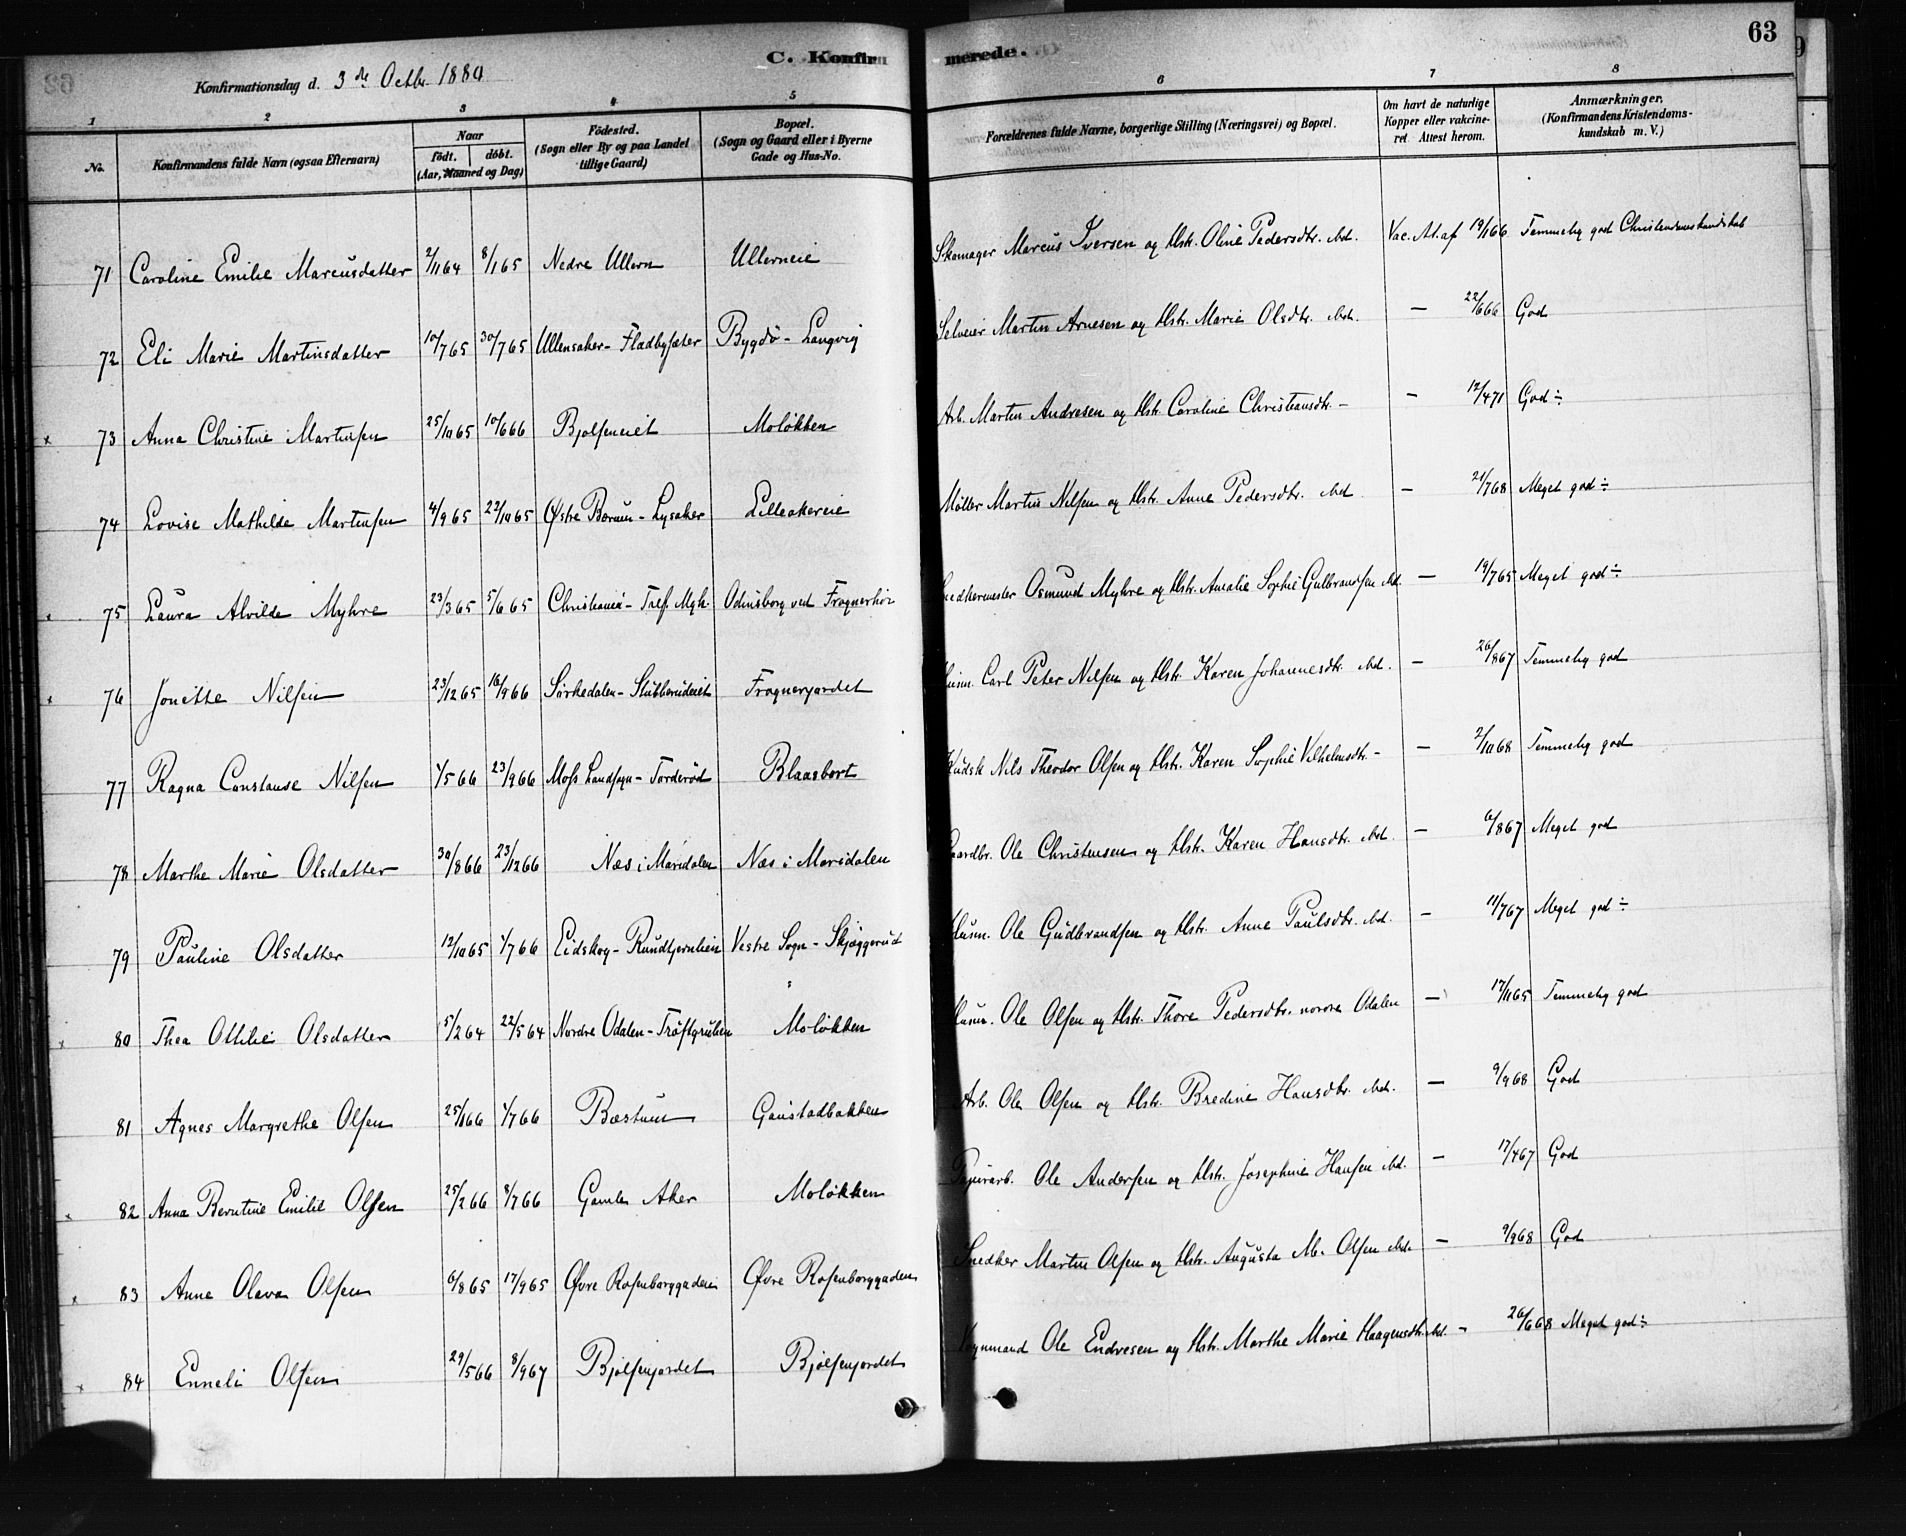 63
C. Konfirmerede.
Konfirmationsdag d. 3de Octbr. 1880
1 2 3 4 5 6 7 8
No. Konfirmandens fulde Navn (ogsaa Efternavn) Naar födt. döbt. (Aar, Maaned og Dag) Födested. (Sogn eller By og paa Landet tillige Gaard) Bopæl. (Sogn og Gaard eller i Byerne Gade og Hus-No. Forældrenes fulde Navne, borgerlige Stilling (Næringsvei) og Bopæl. Om havt de naturlige Kopper eller vakcineret. Attest herom. Anmærkninger. (Konfirmandens Kristendomskundskab m. V.)
71 Caroline Emilie Marcusdatter 2/11 64 8/1 65 Nedre Ullern Ullerneie Skomager Marcus Iversen og Hstr. Oline Pedersdtr. ibd. Vac. At. af 19/1 66 Temmelig god Christendomskundskab
72 Eli Marie Martinsdatter 10/7 65 30/7 65 Ullensaker - Fladbysæter Bygdö - Langvig Selveier Martin Arnesen og Hstr. Marie Olsdtr. ibd. — 22/6 66 God
73 Anna Christine Martinsen 25/10 65 10/6 66 Bjolseneiet Moløkken Arb. Martin Andresen og Hstr. Caroline Christiansdtr. - — 12/4 71 God ÷
74 Lovise Mathilde Martinsen 4/9 65 22/10 65 Østre Bærum - Lysaker Lilleakereie Møller Martin Nilsen og Hstr. Anne Pedersdtr. ibd — 21/7 68 Meget god ÷
75 Laura Alvilde Myhre 23/3 65 5/6 65 Christiania - Tref. Mgh. Odinsborg ved Frognerhøi Snedkermester Osmund Myhre og Hstr. Amalie Sophie Gulbrandsen ibd. — 19/7 65 Meget god ÷
76 Jonette Nilsen 23/12 65 16/9 66 Sørkedalen - Stubberudeiet Frognerjordet Husm. Carl Peter Nilsen og Hstr. Karen Johannesdtr. ibd. — 26/8 67 Temmelig god
77 Ragna Constanse Nilsen 1/5 66 23/9 66 Moss Landsogn - Torderød Blaasbort Kudsk Nils Theodor Olsen og Hstr. Karen Sophie Vilhelmsdtr. - — 2/10 68 Temmelig god
78 Marthe Marie Olsdatter 30/8 66 23/12 66 Næs i Maridalen Næs i Maridalen Gaardbr. Ole Christensen og Hstr. Karen Hansdtr. ibd. — 6/8 67 Meget god
79 Pauline Olsdatter 12/10 65 1/7 66 Eidskog - Rundtjernlien Vestre Sogn - Skjøggerud Husm. Ole Gudbrandsen og Hstr. Anne Paulsdtr. ibd. — 11/7 67 Meget god ÷
80 Thea Ottilie Olsdatter 5/2 64 22/5 64 Nordre Odalen - Trøftgruben Moløkken Husm. Ole Olsen og Hstr. Thore Pedersdtr. nordre Odalen — 17/11 65 Temmelig god
81 Agnes Margrethe Olsen 25/1 66 1/7 66 Bæstum Gaustadbakken Arb. Ole Olsen og Hstr. Bredine Hansdtr. ibd. — 9/9 68 God
82 Anna Berntine Emilie Olsen 25/2 66 8/7 66 Gamle Aker Moløkken Papirarb. Ole Andersen og Hstr. Josephine Hansen ibd. — 17/4 67 God
83 Anne Olava Olsen 6/8 65 17/9 65 Øvre Rosenborggaden Øvre Rosenborggaden Snedker Martin Olsen og Hstr. Augusta M. Olsen ibd. — 9/9 68 God
84 Enneli Olsen 29/5 66 8/9 67 Bjølsenjordet Bjølsenjordet Vognmand Ole Endresen og Hstr. Marthe Marie Haagensdtr. ibd. — 26/6 68 Meget god ÷